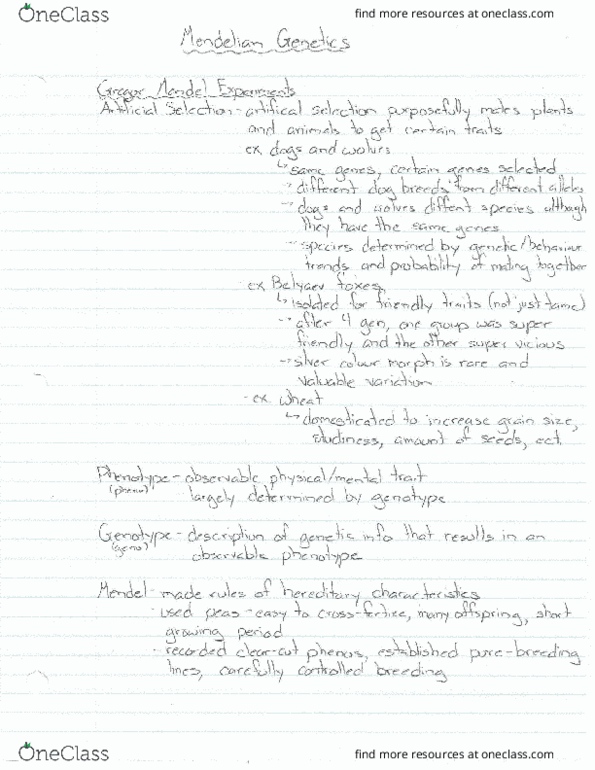 OneClass
find more resources at oneclass.com
Mendelian Genetics
Gregor Mendel Experiments
Artificial Selection - artifical selection purposefully mates plants
and animals to get certain traits
ex dogs and wolves
↳ same genes, certain genes selected
- different dog breeds from different alleles
- dogs and wolves diffent species although
they have the same genes
- species determined by genetic/behaviour
trends and probability of mating together
ex Belyaev foxes
↳ isolated for friendly traits (not just tame)
- after 4 gen, one group was super
friendly and the other super vicious
- silver colour morph is rare and
valuable variation
- ex. wheat
↳ domesticated to increase grain size,
studiness, amount of seeds, ect.
Phenotype - observable physical/mental trait
(pheno) largely determined by genotype
Genotype - description of genetic info that results in an
(geno) observable phenotype
Mendel - made rules of hereditary characteristics
- used peas - easy to cross-fertize, many offspring, short
growing period
- recorded clear-cut phenos, established pure-breeding
lines, carefully controlled breeding
OneClass
find more resources at oneclass.com